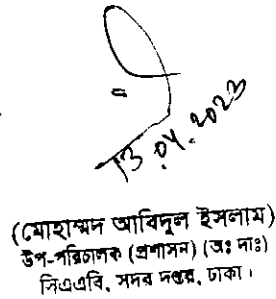 13.04.2023
(মোহাম্মদ আবিদুল ইসলাম)
উপ-পরিচালক (প্রশাসন) (অঃ দাঃ)
সিএএবি, সদর দপ্তর, ঢাকা।